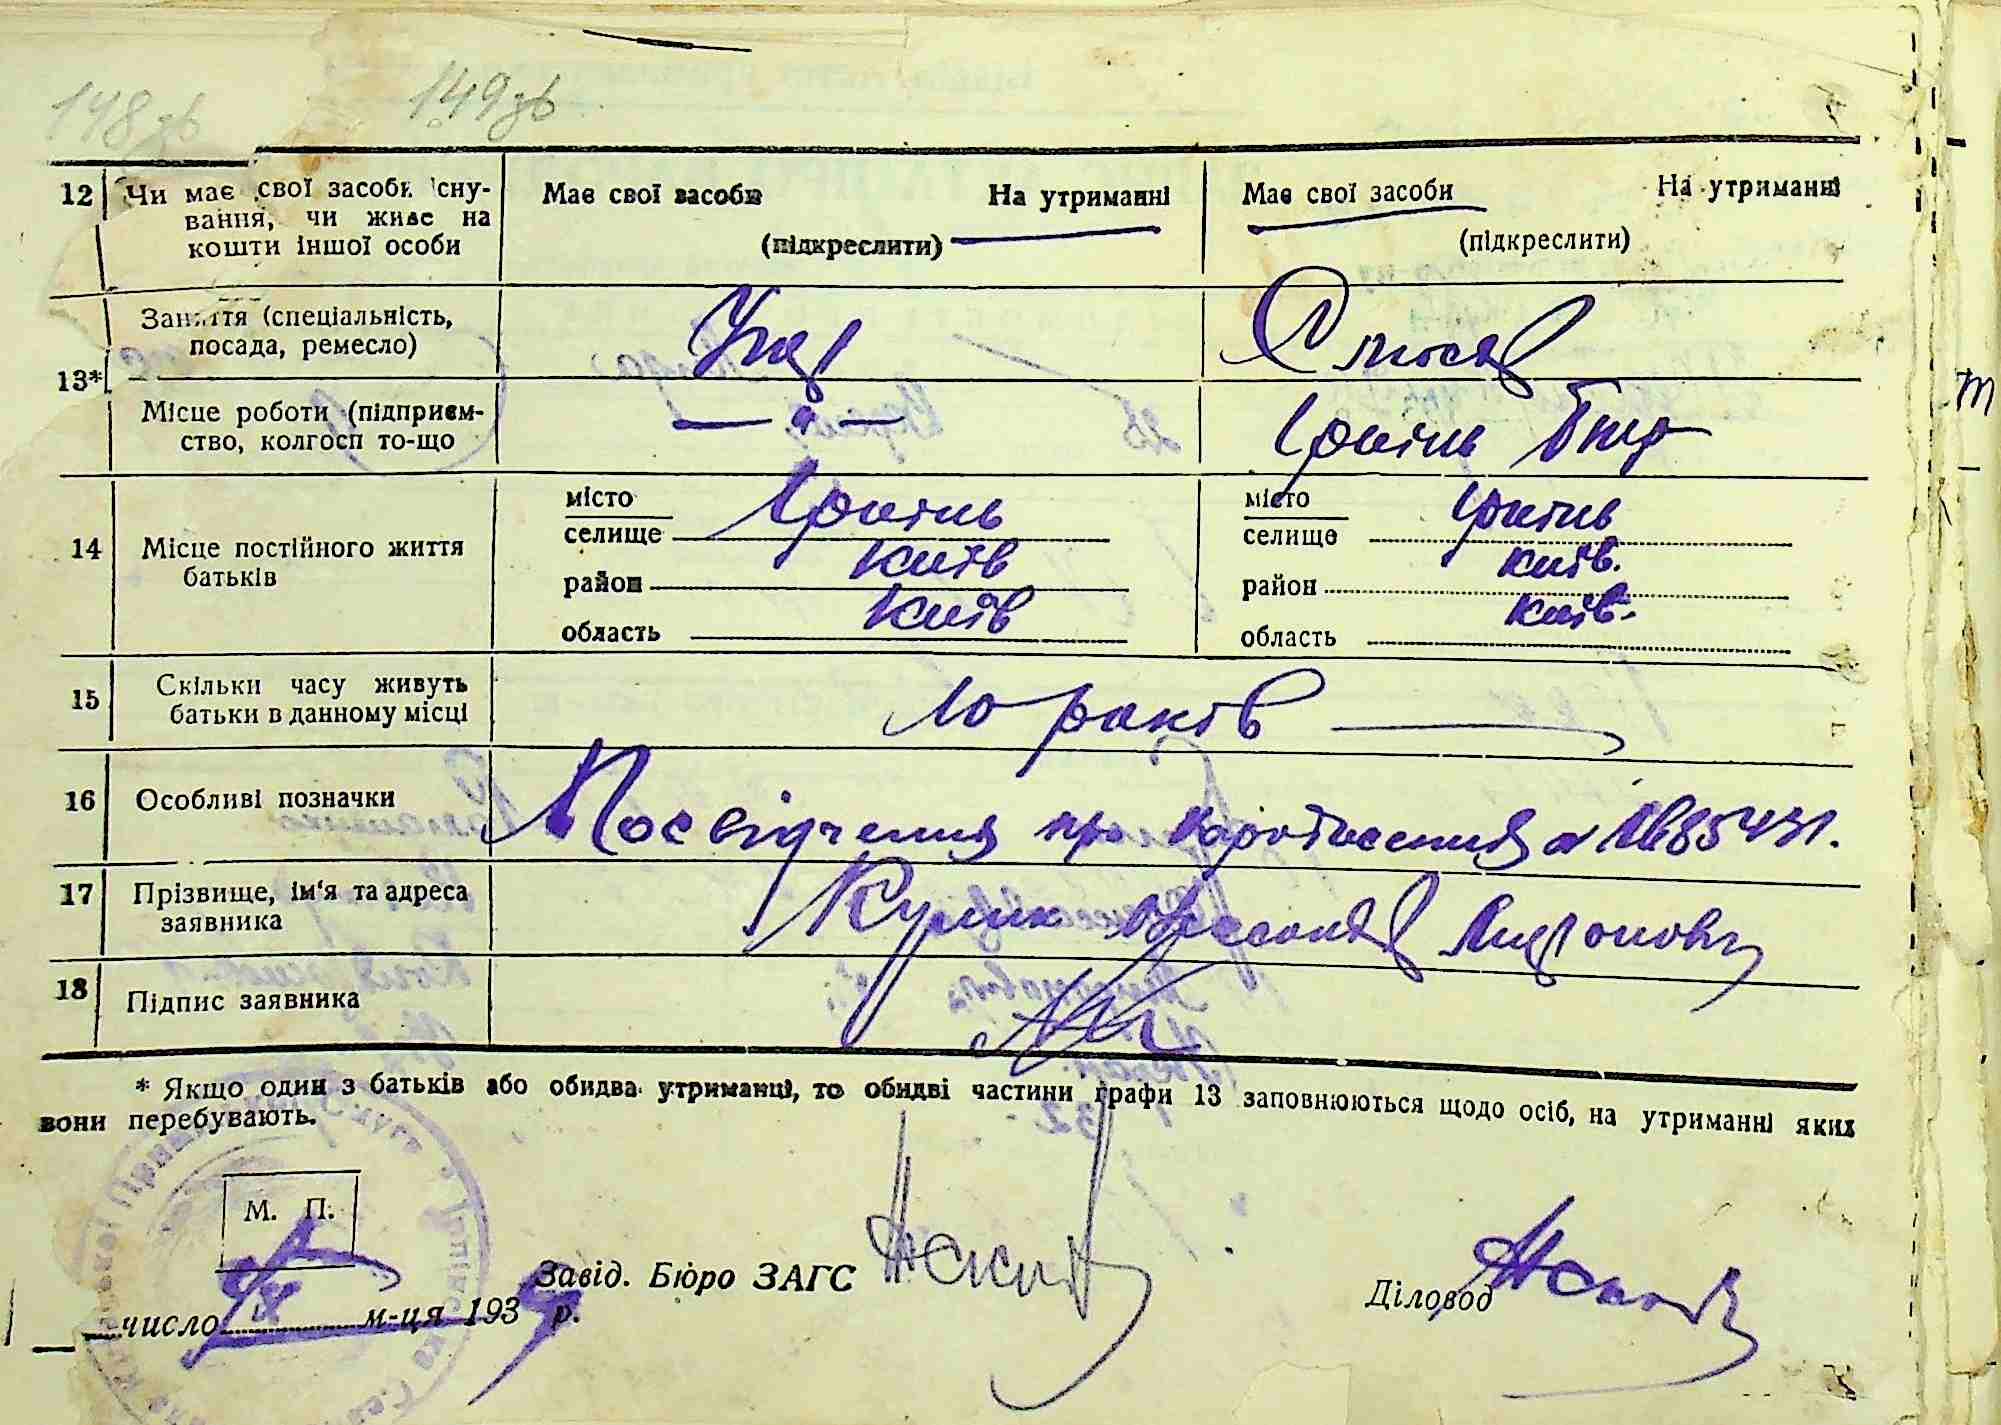 148зв 149зв
12 Чи має свої засоби існу-
вання, чи живе на
кошти іншої особи
Має свої засоби На утриманні
(підкреслити)
Має свої засоби На утриманні
(підкреслити)
13*
Заняття (спеціальність,
посада, ремесло)
Слюсар
Місце роботи (підприєм-
ство, колгосп то-що
— " —
Ірпінь
14 Місце постійного життя
батьків
місто Ірпінь
селище
район Київ
область Київ
місто Ірпінь
селище
район Київ.
область Київ.
15 Скільки часу живуть
батьки в данному місці
10 років
16 Особливі позначки
Посвідчення про народження
17 Прізвище, ім'я та адреса
заявника
Кулик
18 Підпис заявника
* Якщо один з батьків або обидва утриманці, то обидві частини графи 13 заповнюються щодо осіб, на утриманні яких
вони перебувають.
М. П.
число м-ця 193 р.
Завід. Бюро ЗАГС
Діловод